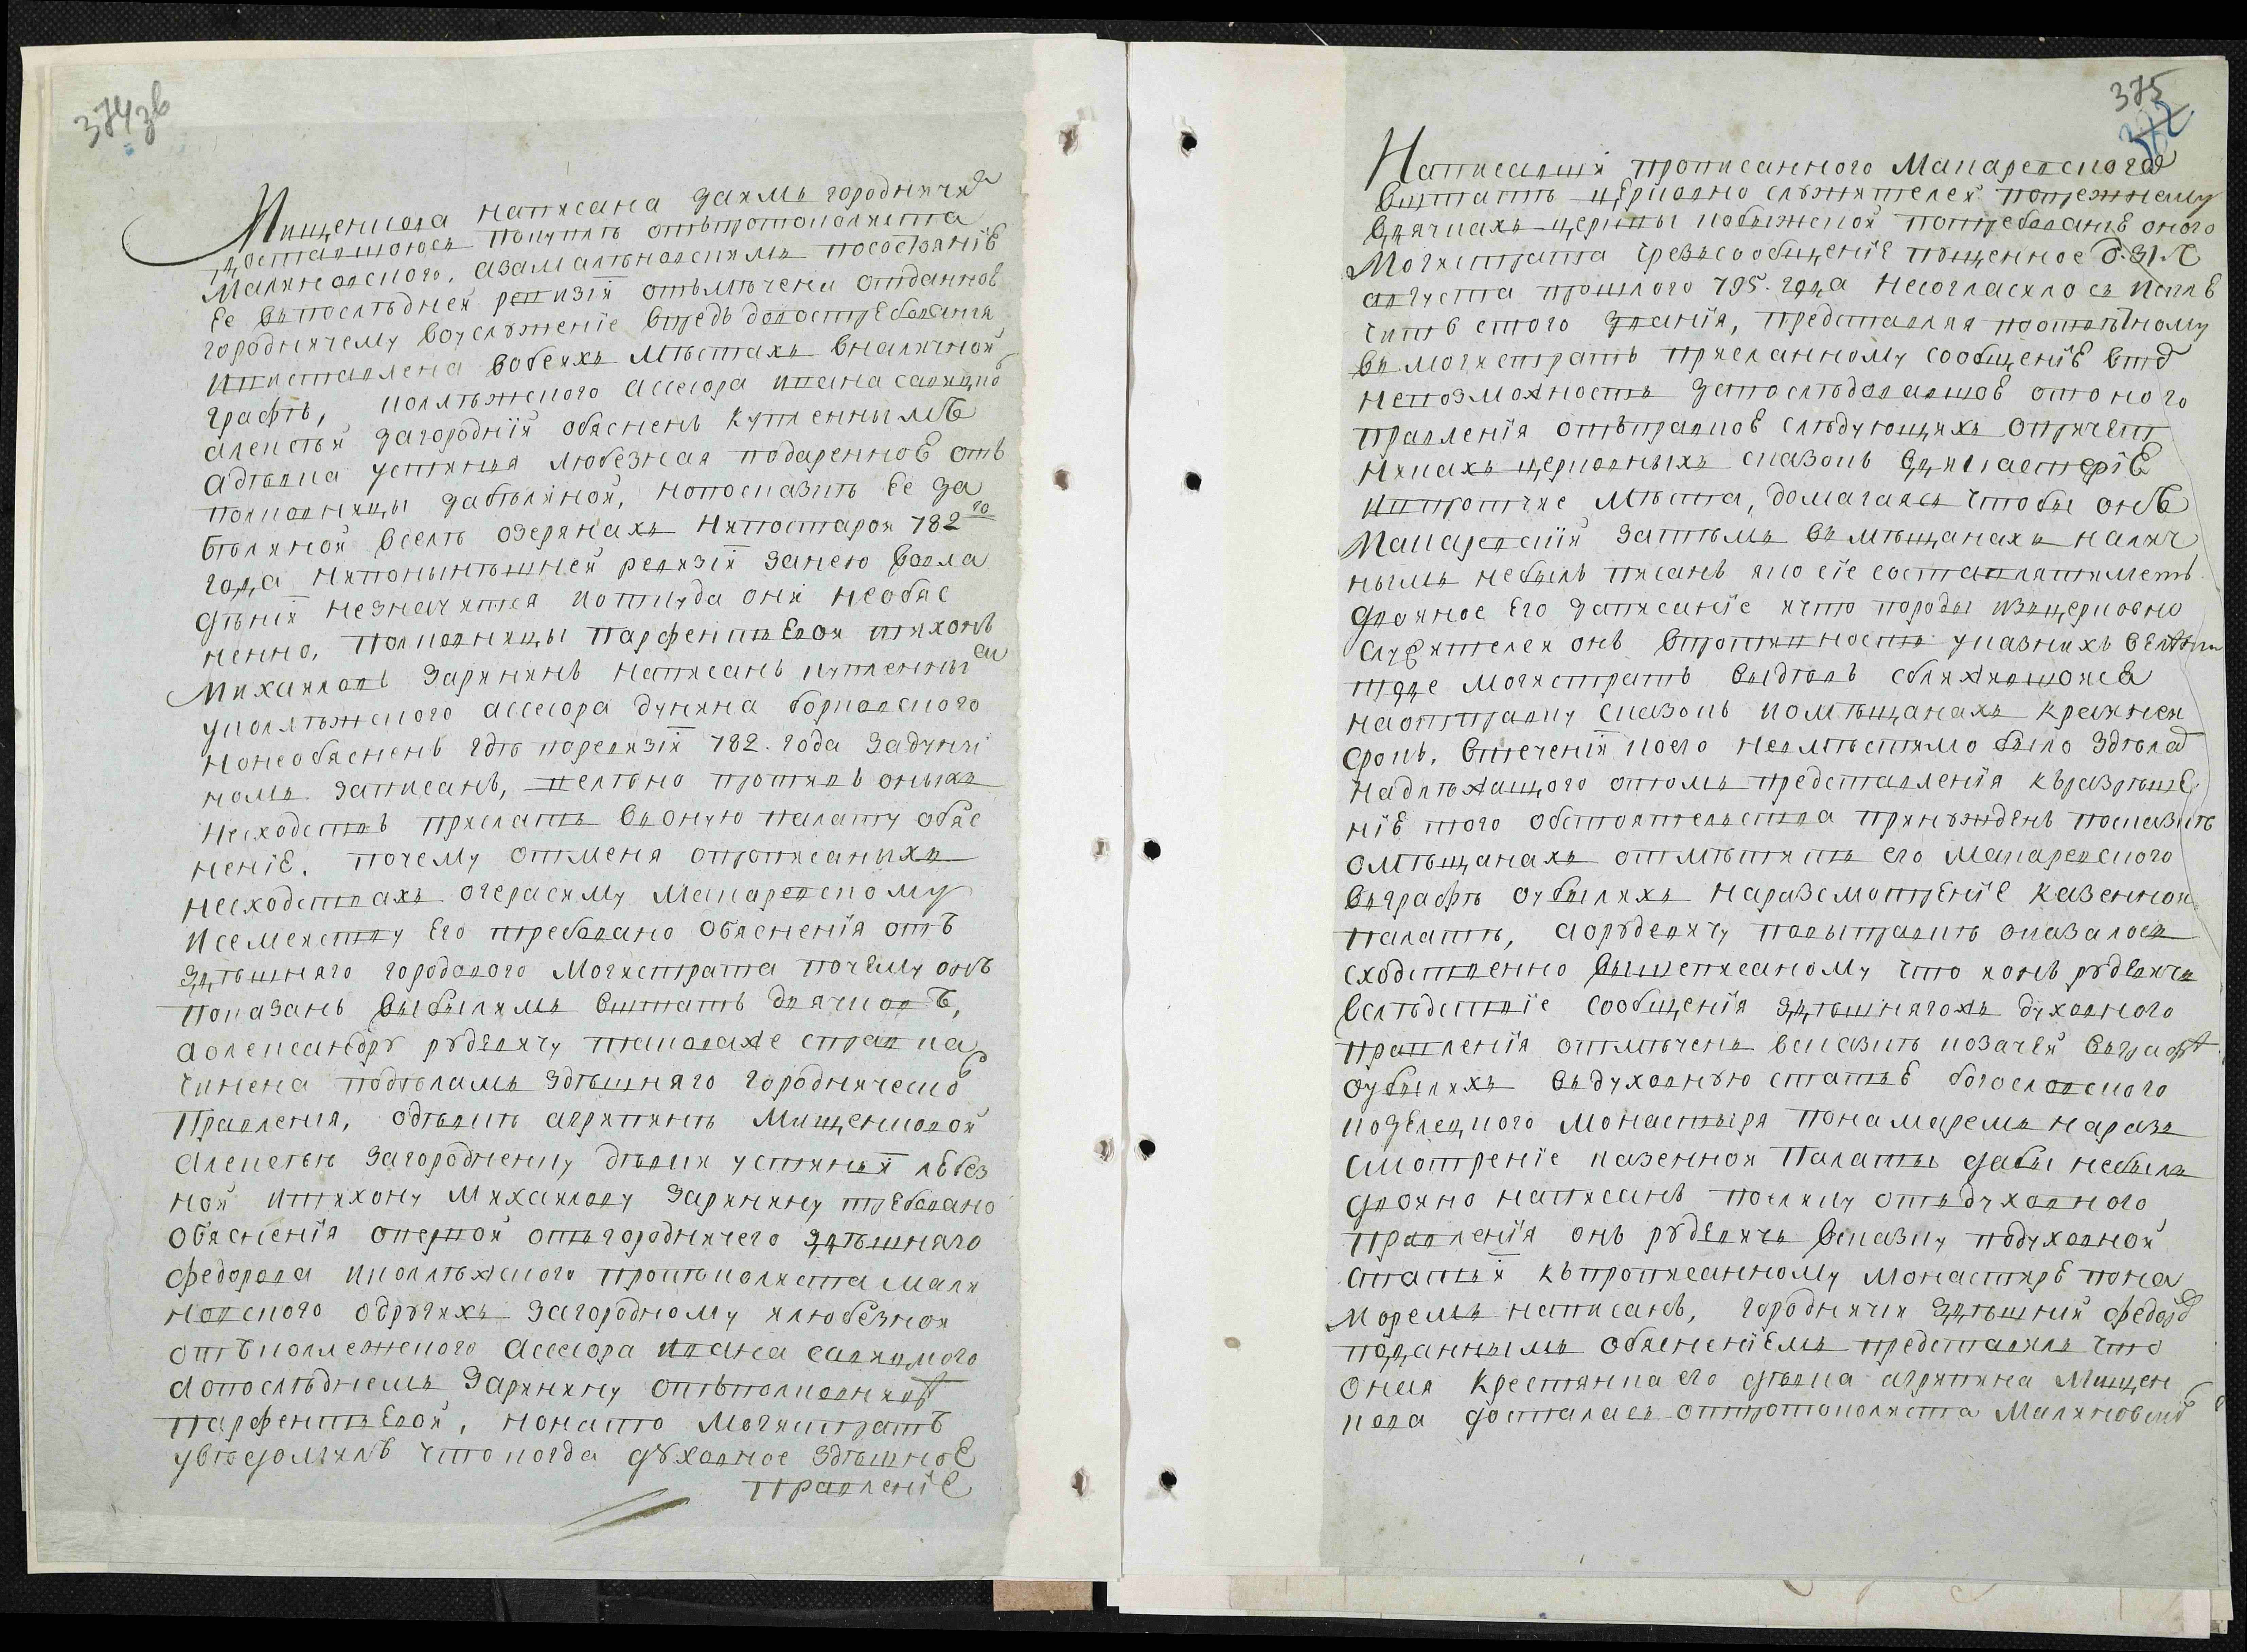 374зв
Мищенкова написана заимъ городничи
доставшоюся покупкѣ отъпротополиста
Малиновского, азамалиновскимъ посостоянiе
ее въпослѣдней ревизiи отмѣчени отданное
городничему воуслуженiе впредь довостребования
ипоставлена вобеихъ мѣстахъ вналичной
графѣ, колѣжского ассесора ивана савицко
алексѣй загороднiй обясненъ купленнымъ
адѣвка устинья любезная подаренное отъ
полковницы забѣлиной, нопосказкѣ ее за
бѣлиной вселѣ озерянахъ нипостарой 782го
года нипонынѣшней ревизiи занею вовла
дѣнiи незначится иоткуда они необяс
ненно, полковницы парфентьевой тихонъ
михаиловъ зарининъ написанъ купленны
уколѣжского ассесора дунина борковского
нонеобясненъ гдѣ поревизiи 782. года задуни
номъ записанъ, велѣно противъ оныхъ
несходствъ прислать воную палату обяс
ненiе. почему отменя опрописаныхъ
несходствахъ огерасиму макаревскому
исемейству его требовано обяснения отъ
здѣшняго городового Могистрата почему онъ
показанъ выбылимъ вштатъ дьячковъ,
аолександру рудевичу таковаже справка
чинена подѣламъ здѣшняго городническо
Правления, одѣвкѣ агрипинѣ Мищенковой
Алексѣю загородненку дѣвки устиньи любез
ной итихону михаилову заринину требовано
обяснения опервой отгородничего здѣшняго
федорова иколлѣжского протоколиста мали
новского одругихъ загородному илюбезной
отъколлежского ассесора ивана савицкого
апослѣднемъ Заринину отъполковниц
парфентьевой, нонато Могистратъ
увѣдомилъ чтокогда духовное здѣшное
правленiе
375
372
Написавши прописанного Макаревского
вштатъ церковно служителей попрежнему
вдячкахъ церкви ковыжской потребованiе оного
Могистрата чрезъсообщенiе пущенное 31.
августа прошлого 795. года несогласилось исклю
чить стого званiя, представляя поотвѣтному
въ могистратъ присланному сообщенiе вто
невозможность запослѣдовавшое отоного
правленiя отъправкое слѣдующихъ опричет
никахъ церковныхъ сказокъ вдикастерiе
ипротчие мѣста, домагаясь чтобы онъ
Макаревскiй затѣмъ въ мѣщанахъ налич
нымъ небылъ писанъ яко сiе составлятиметъ
двойное его записанiе ичто породы изцерковно
служителей онъ впротивность указнихъ велѣни
тоже могистратъ видѣвъ сближившойся
наотправку сказокъ комѣщанахъ крайней
срокъ, втеченiи коего невмѣстимо было здѣла
надлѣжащого отомъ представленiя къразрѣше
нiе того обстоятельства принужденъ посказкѣ
омѣщанахъ отмѣтить его макаревского
въграфѣ оубылихъ наразсмотренiе казенной
палатѣ, аорудевичу повыправкѣ оказалось
сходственно вышеписаному что ионъ рудевичъ
вслѣдствiе сообщенiя здѣшнягожъ духовного
правленiя отмѣченъ всказкѣ козачей въграф
оубылихъ въдуховную статье богословского
козелецкого монастыря понамаремъ наразъ
смотренiе казенной Палаты дабы небылъ
двойно написанъ поелику отъдуховного
правленiя онъ рудевичъ всказку подуховной
статьи къпрописанному монастирѣ пона
моремъ написанъ, городничий здѣшний федоро
поданнымъ обясненiемъ представилъ что
оная крестянка его дѣвка агрипина Мищен
кова досталась отпротополиста Малиновско